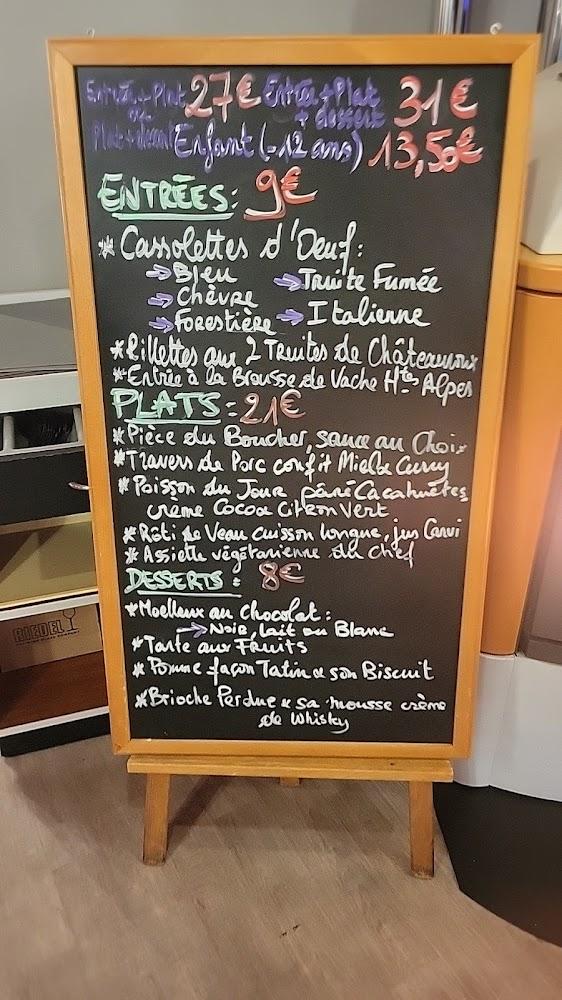 Entrée + Plat 27€ Entrée + Plat 31€
ou + dessert
Plat + dessert Enfant (-12 ans) 13,50€
ENTRÉES: 9€
* Cassolettes d'Oeuf:
→ Bleu → Truite Fumée
→ Chèvre
→ Forestière → Italienne
* Rillettes aux 2 Truites de Châteauroux
* Entrée à la Brousse de Vache Htes Alpes
PLATS: 21€
* Pièce du Boucher, sauce au Choix
* Travers de Porc confit Miel & Curry
* Poisson du Jour pané Cacahuètes
crème Coco & Citron Vert
* Rôti de Veau cuisson longue, jus Carvi
* Assiette végétarienne du chef
DESSERTS: 8€
* Moelleux au chocolat:
→ Noir, lait ou Blanc
* Tarte aux Fruits
* Pomme façon Tatin & son Biscuit
* Brioche Perdue & sa mousse crème
de Whisky
RIEDEL